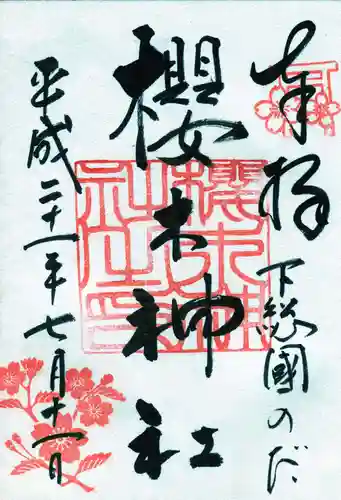 奉拝
下総國のだ
櫻木神社
平成二十一年七月十一日